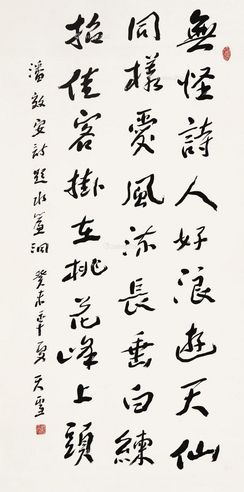 無怪詩人好浪遊天仙
同樣愛風流長垂白練
招佳客掛在桃花峰上頭
潘效安詩題水簾洞 癸未年夏 天